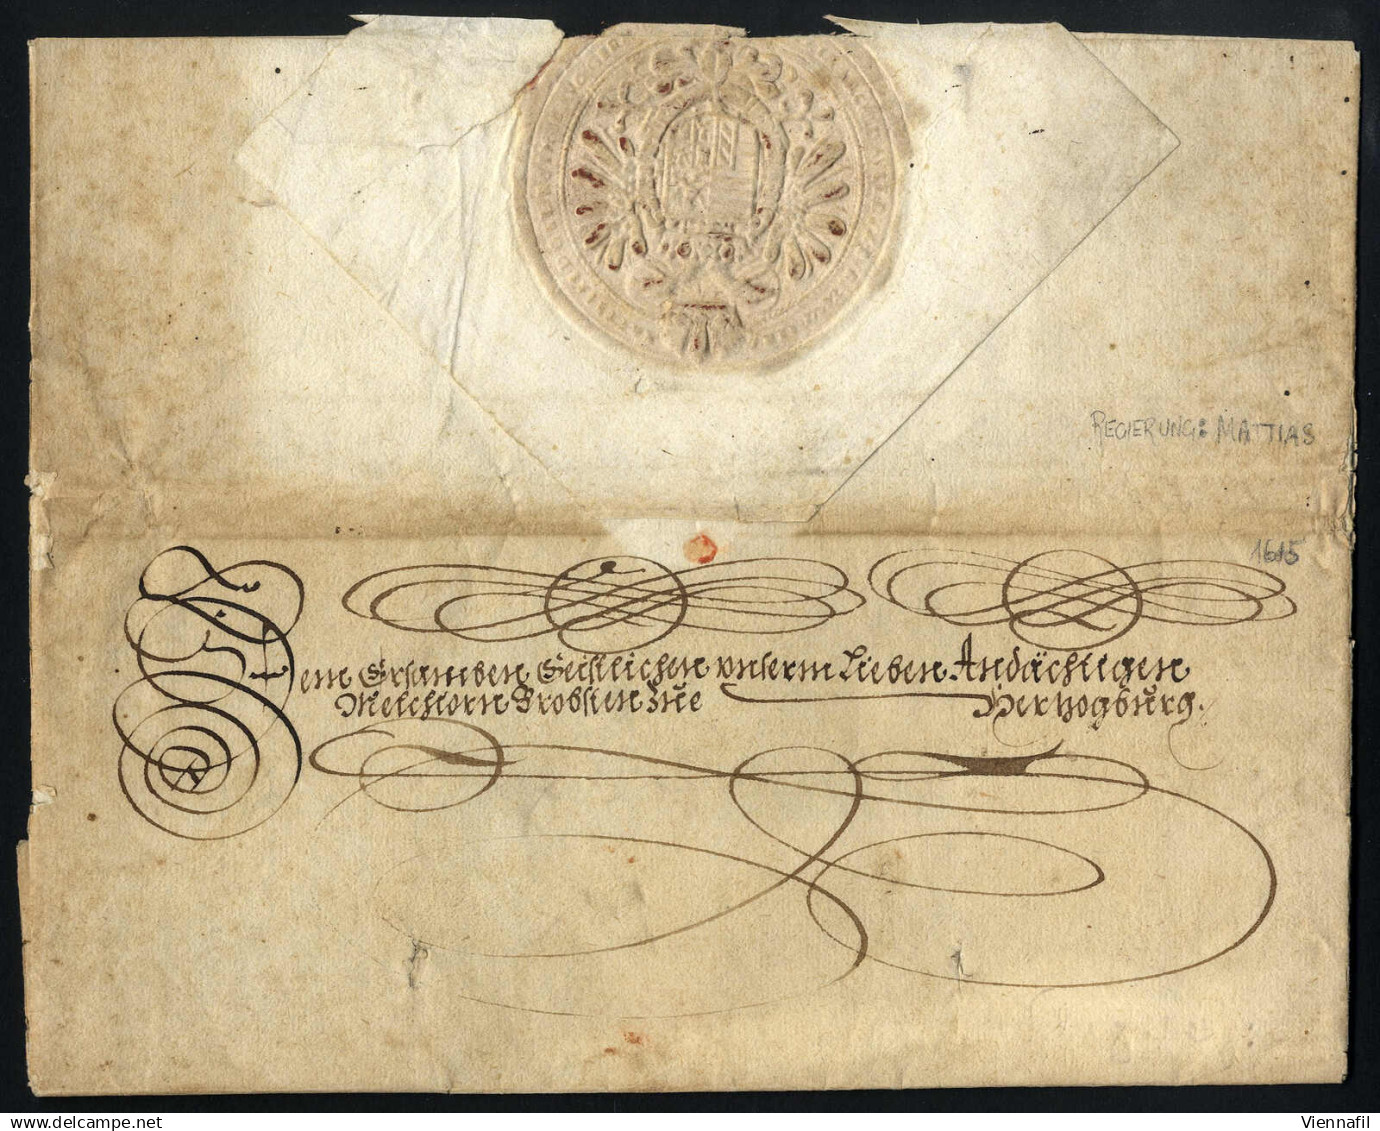 REGIERUNG: MATTIAS
1615
Dem Ersamben Geistlichen unserm Lieben Andächtigen
Melchiorn Brobsten Zue Herzogburg.
Viennafil